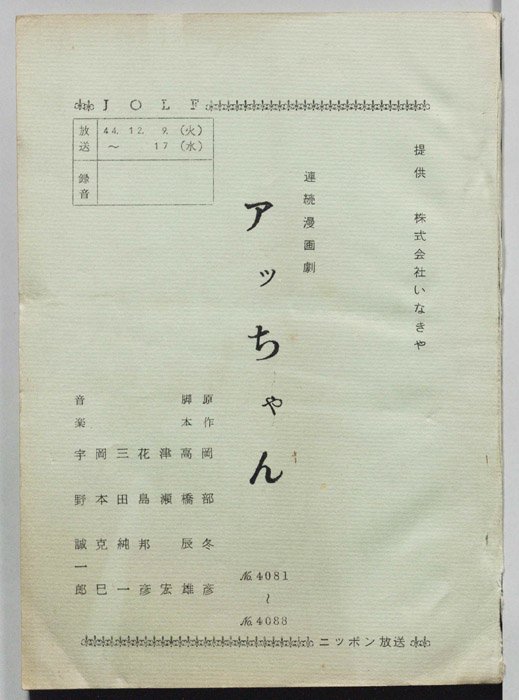 JOLF
放送 44. 12. 9. (火)
〜 17 (水)
録音
提供 株式会社いなきや
連続漫画劇
アッちゃん
原作 岡部冬彦
脚本 高橋辰雄
津瀬宏
花島邦彦
三田純一
岡本克巳
音楽 宇野誠一郎
№4081
〜
№4088
ニッポン放送